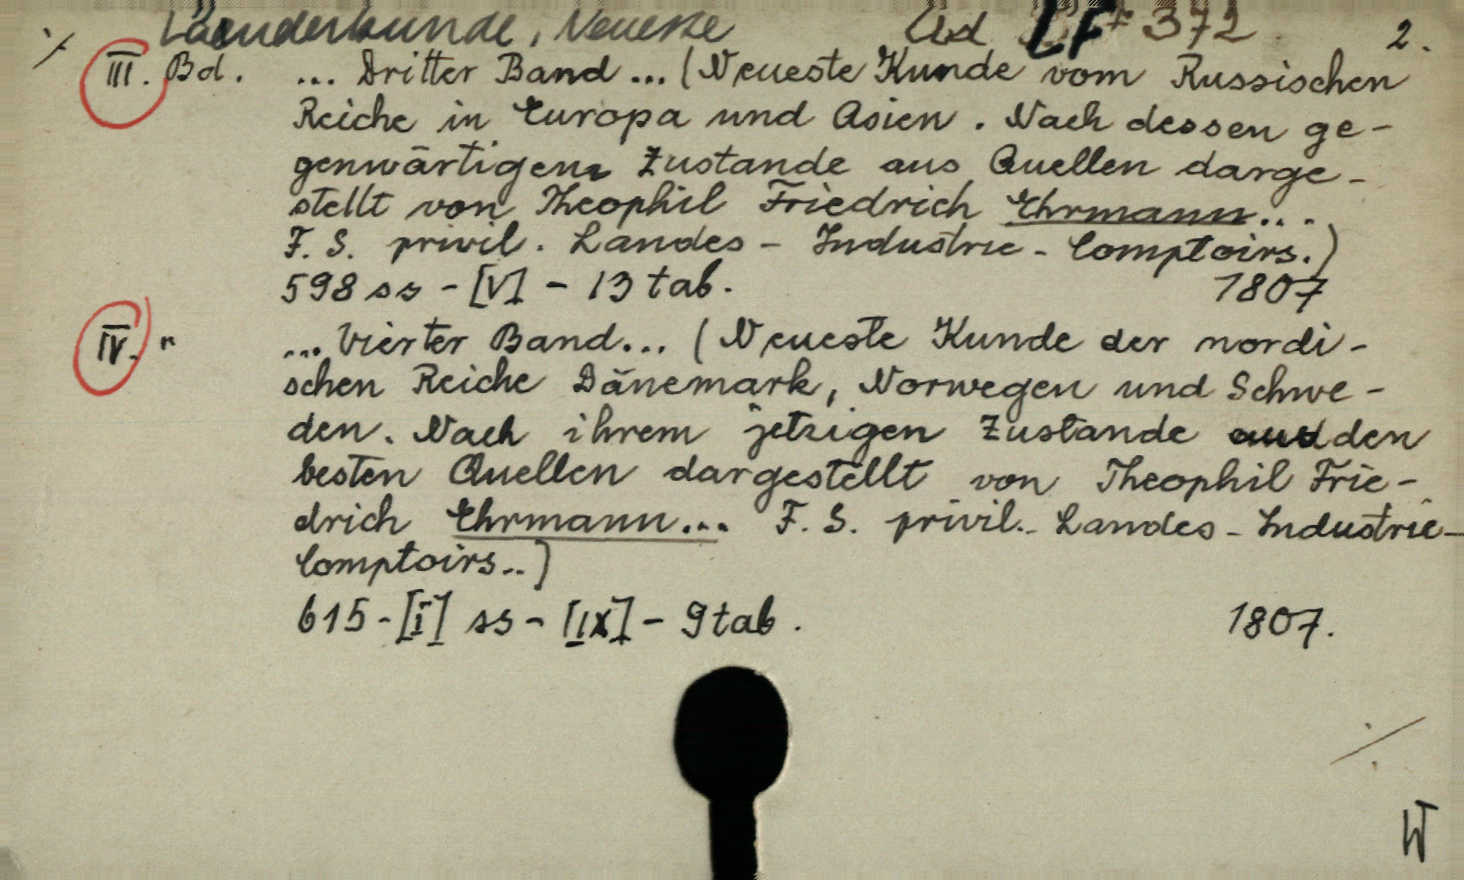 Laenderkunde, Neueste Ad LF + 372 2.
III. Bd. ... Dritter Band ... (Neueste Kunde vom Russischen
Reiche in Europa und Asien. Nach dessen ge-
genwärtigen Zustande aus Quellen darge-
stellt von Theophil Friedrich Ehrmann...
F. S. privil. Landes - Industrie - Comptoirs.)
598 ss - [V] - 13 tab. 1807
IV. " ... Vierter Band... (Neueste Kunde der nordi-
schen Reiche Dänemark, Norwegen und Schwe-
den. Nach ihrem jetzigen Zustande aus den
besten Quellen dargestellt von Theophil Frie-
drich Ehrmann... F. S. privil. Landes - Industrie-
Comptoirs..)
615 - [I] ss - [IX] - 9 tab. 1807.
W